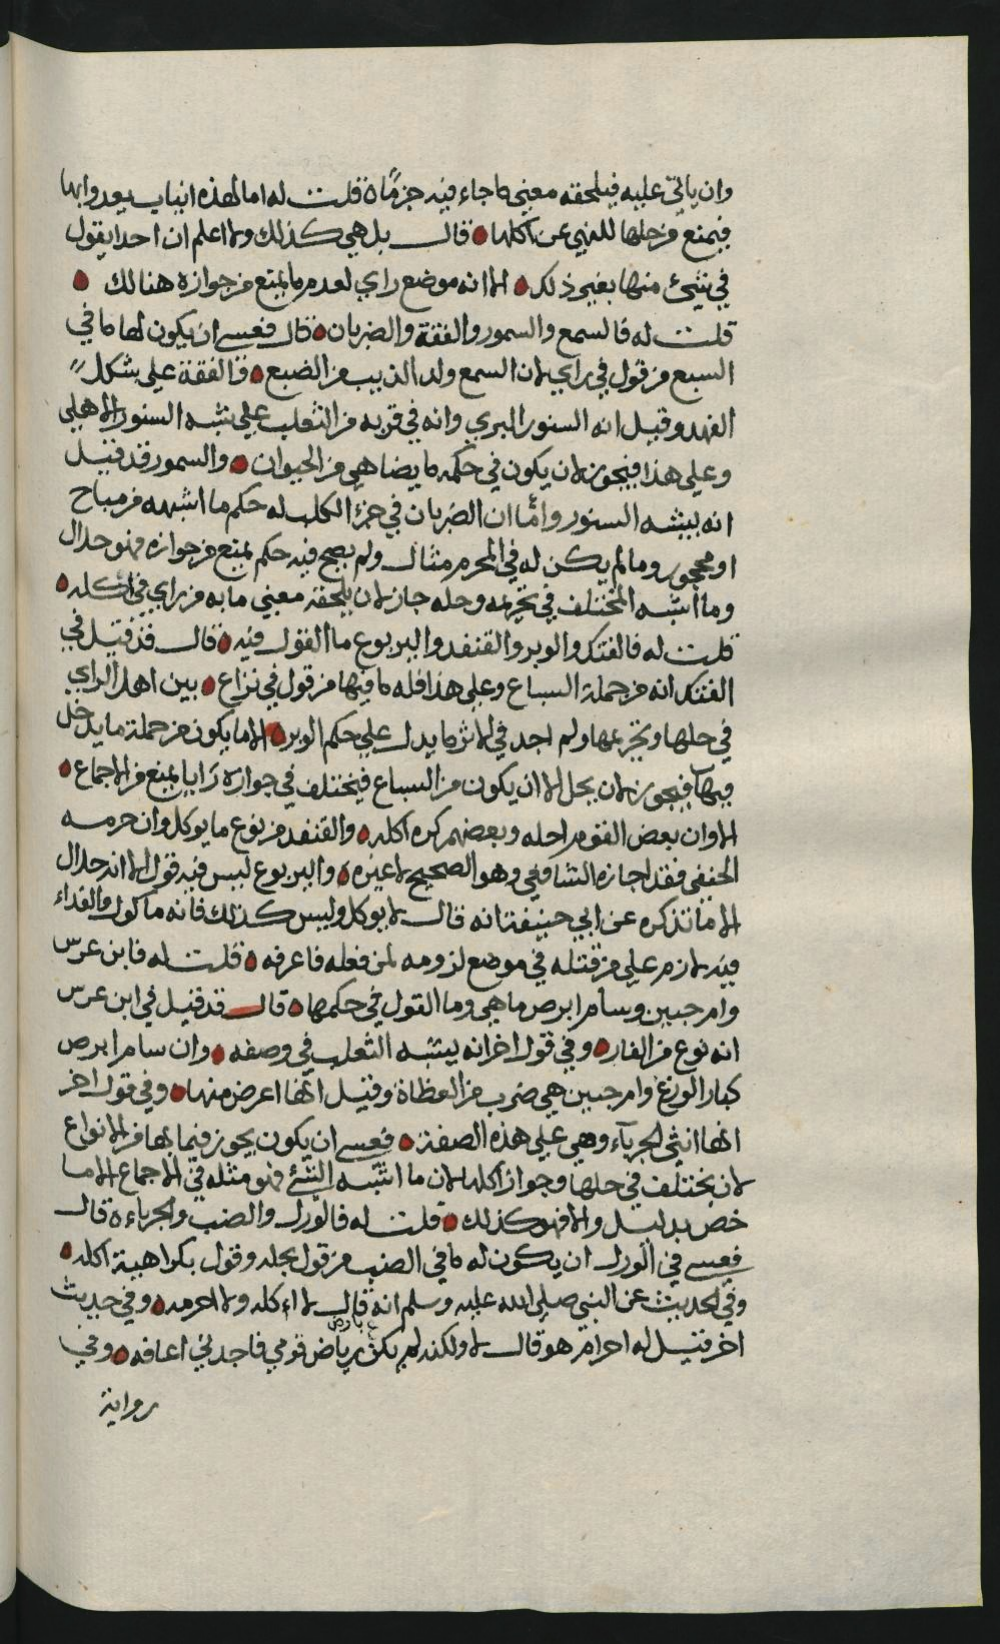 وان ياتي عليه فيلحقه معنى ما جاء فيه جزمًا ه قلت له اما لهذه انياب يعدوا بها
فيمنع من حلها للنهي عن اكلها ه قال بل هي كذلك ولا اعلم ان احدا يقول
في شيئ منها بغير ذلك ه الا انه موضع راي لعدم ما يمنع من جوازه هنالك ه
قلت له فالسمع والسمور والفقة والضربان ه قال فعسى ان يكون لها ما في
السبع من قول في راي لان السمع ولد الذيب من الضبع ه والفقة على شكل
الفهد وقيل انه السنور البري وانه في قربه من الثعلب على شبه السنور الاهلي
وعلى هذا فيجوز لان يكون في حكمه ما يضاهي من الحيوان ه والسمور قد قيل
انه يشبه السنور وامّا ان الضربان في جرء الكلب له حكم ما اشبهه من مباح
او محجور وما لم يكن له في المحرم مثال ولم يصح فيه حكم يمنع من جوازه فهو حلال
وما اشبه المختلف في تحريمه وحله جاز لان يلحقه معنى ما به من راي في اكله ه
قلت له فالفتك والوبر والقنفد واليربوع ما القول فيه ه قال قد قيل في
الفنك انه من جملة السباع وعلى هذا فله ما فيها من قول في نزاع ه بين اهل الراي
في حلها وتحريمها ولم اجد في الاثر ما يدل على حكم الوبر ه الا ما يكون من جملة ما يدخل
فيها فيجوز لان يحل الا ان يكون من السباع فيختلف في جوازه رايا يمنع من الاجماع ه
الا وان بعض القوم احله وبعضهم كره اكله ه والقنفد من نوع ما يوكل وان حرمه
الحنفي فقد اجازه الشافعي وهو الصحيح لا غيره ه واليربوع ليس فيه قول الا انه حلال
الا ما تذكره عن ابي حنيفة انه قال لا يوكل وليس كذلك فانه ماكول والفداء
فيه لازم على من قتله في موضع لزومه لمن فعله فاعرفه ه قلت له فابن عرس
وام حبين وسام ابرص ما هي وما القول في حكمها ه قال قد قيل في ابن عرس
انه نوع من الفار ه وفي قول اخر انه يشبه الثعلب في وصفه ه وان سام ابرص
كبار الوزغ وام حبين هي ضرب من العظاة وقيل انها اعرض منها ه وفي قول اخر
انها انثى الحرباء وهي على هذه الصفة ه فعسى ان يكون يجوز فيما بها من الانواع
لان يختلف في حلها وجواز اكلها لان ما اشبه الشئ فهو مثله في الاجماع الا ما
خص بدليل والا فهو كذلك ه قلت له فالورل والضب والحرباء ه قال
فعسى في الورل ان يكون له ما في الضب من قول بحله وقول بكراهية اكله ه
وفي الحديث عن النبي صلى الله عليه وسلم انه قال لا اءكله ولا احرمه ه وفي حديث
اخر قيل له احرام هو قال لا ولكنه لم يكن برياض قومي فاجدني اعافه ه وفي
بارض
رواية